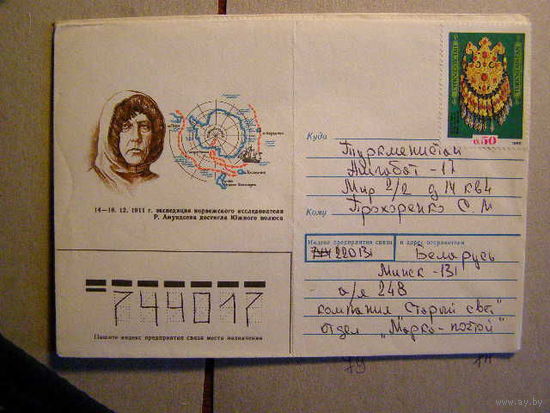 14—16. 12. 1911 г. экспедиция норвежского исследователя
Р. Амундсена достигла Южного полюса
Куда
Туркменистан
Ашгабат - 17
Мир 2/2 д 14 кв 4
Кому
Прохоренко С. М
Индекс предприятия связи
и адрес отправителя
220131
Беларусь
Минск - 131
а/я 248
компания "Старый свет"
отдел "Марко-
744017
Пишите индекс предприятия связи места назначения
0,50
www.ay.by